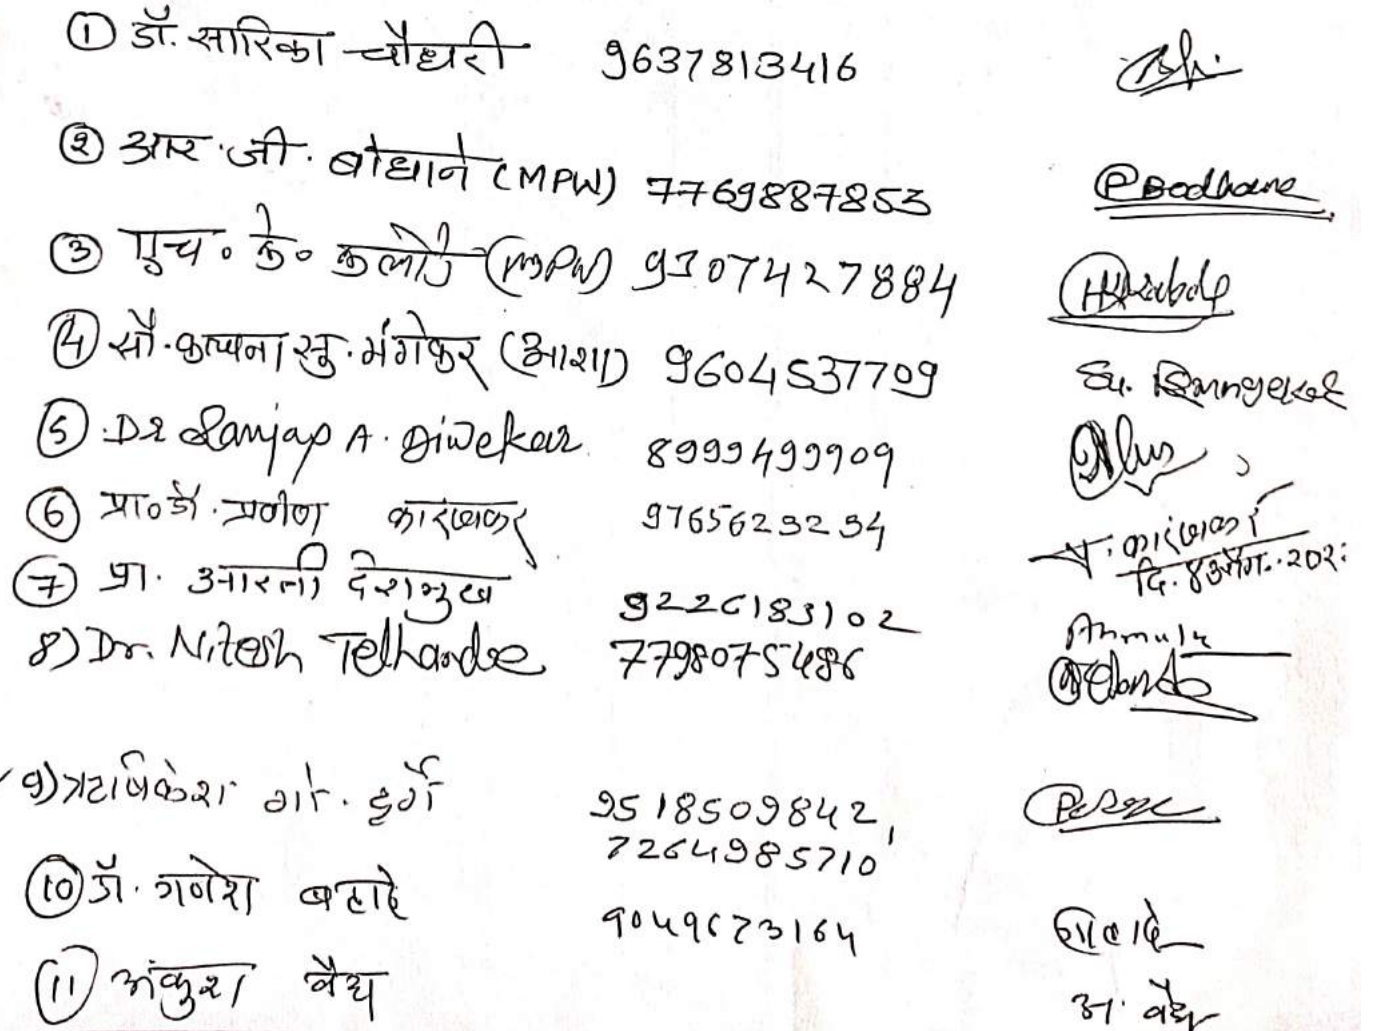 ① डॉ. सारिका चौधरी 9637813416
② आर. जी. बोधाने (MPW) 7769887853 Bodhane
③ एच. के. (MPW) 9307427884
④ सौ. कल्पना सु. मंगेकर (आशा) 9604537709
⑤ Dr Sanjay A. Diwekar 8999499909
⑥ प्रा. डॉ. प्रवीण कारंजकर 9765623234 प. कारंजकर
दि. ४ ऑग. २०२
⑦ प्रा. आरती देशमुख 9226183102
8) Dr. Nitesh Telhande 7798075486
9) ऋषिकेश गो. दुर्गे 9518509842,
7264985710
⑩ डॉ. गणेश बहादे 9049673164
⑪ अंकुश वैद्य अ. वैद्य